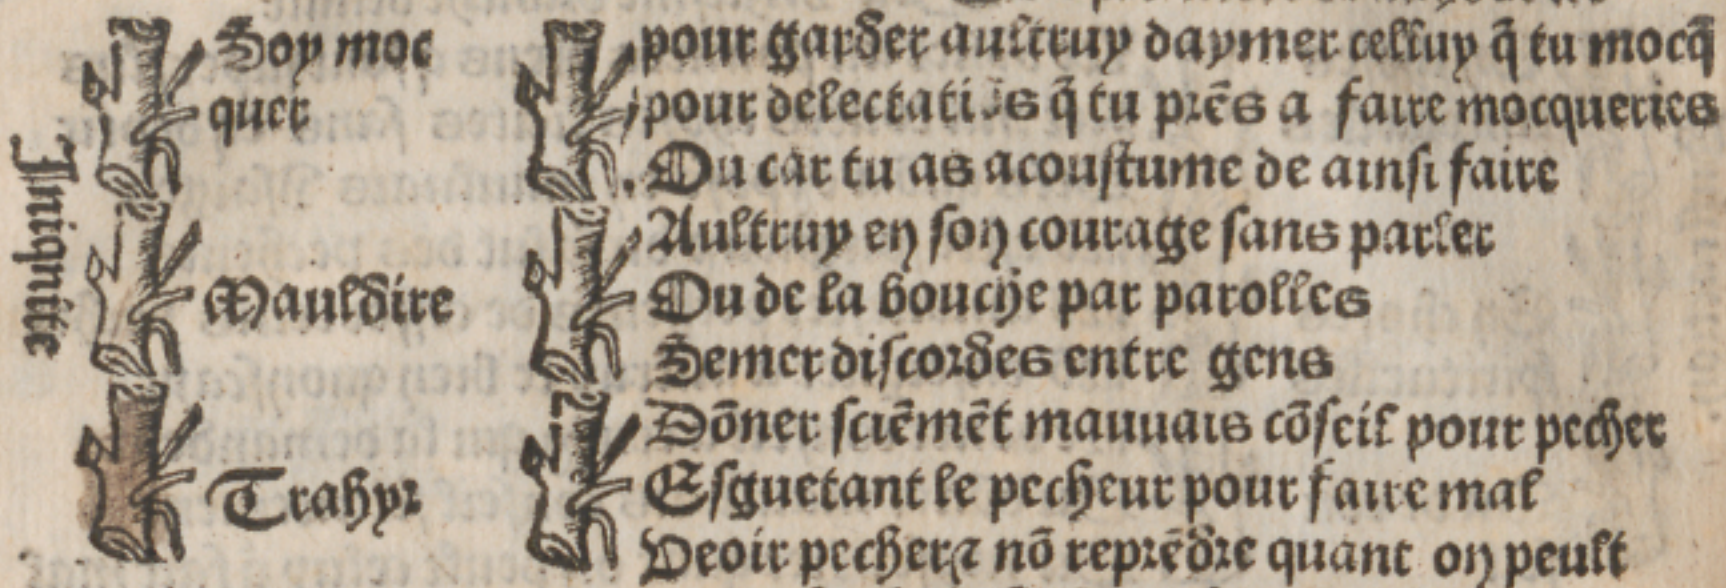 Iniquitte
Soy moc
quer
pour garder aultruy daymer celluy q̃ tu mocq̃
pour delectatiõs q̃ tu prẽs a faire mocqueries
Ou car tu as acoustume de ainsi faire
Mauldire
Aultruy en son courage sans parler
Ou de la bouche par parolles
Semer discordes entre gens
Trahyr
Dõner sciẽmẽt mauuais cõseil pour pecher
Esguetant le pecheur pour faire mal
Veoir pecher ⁊ nõ reprẽdre quant on peult